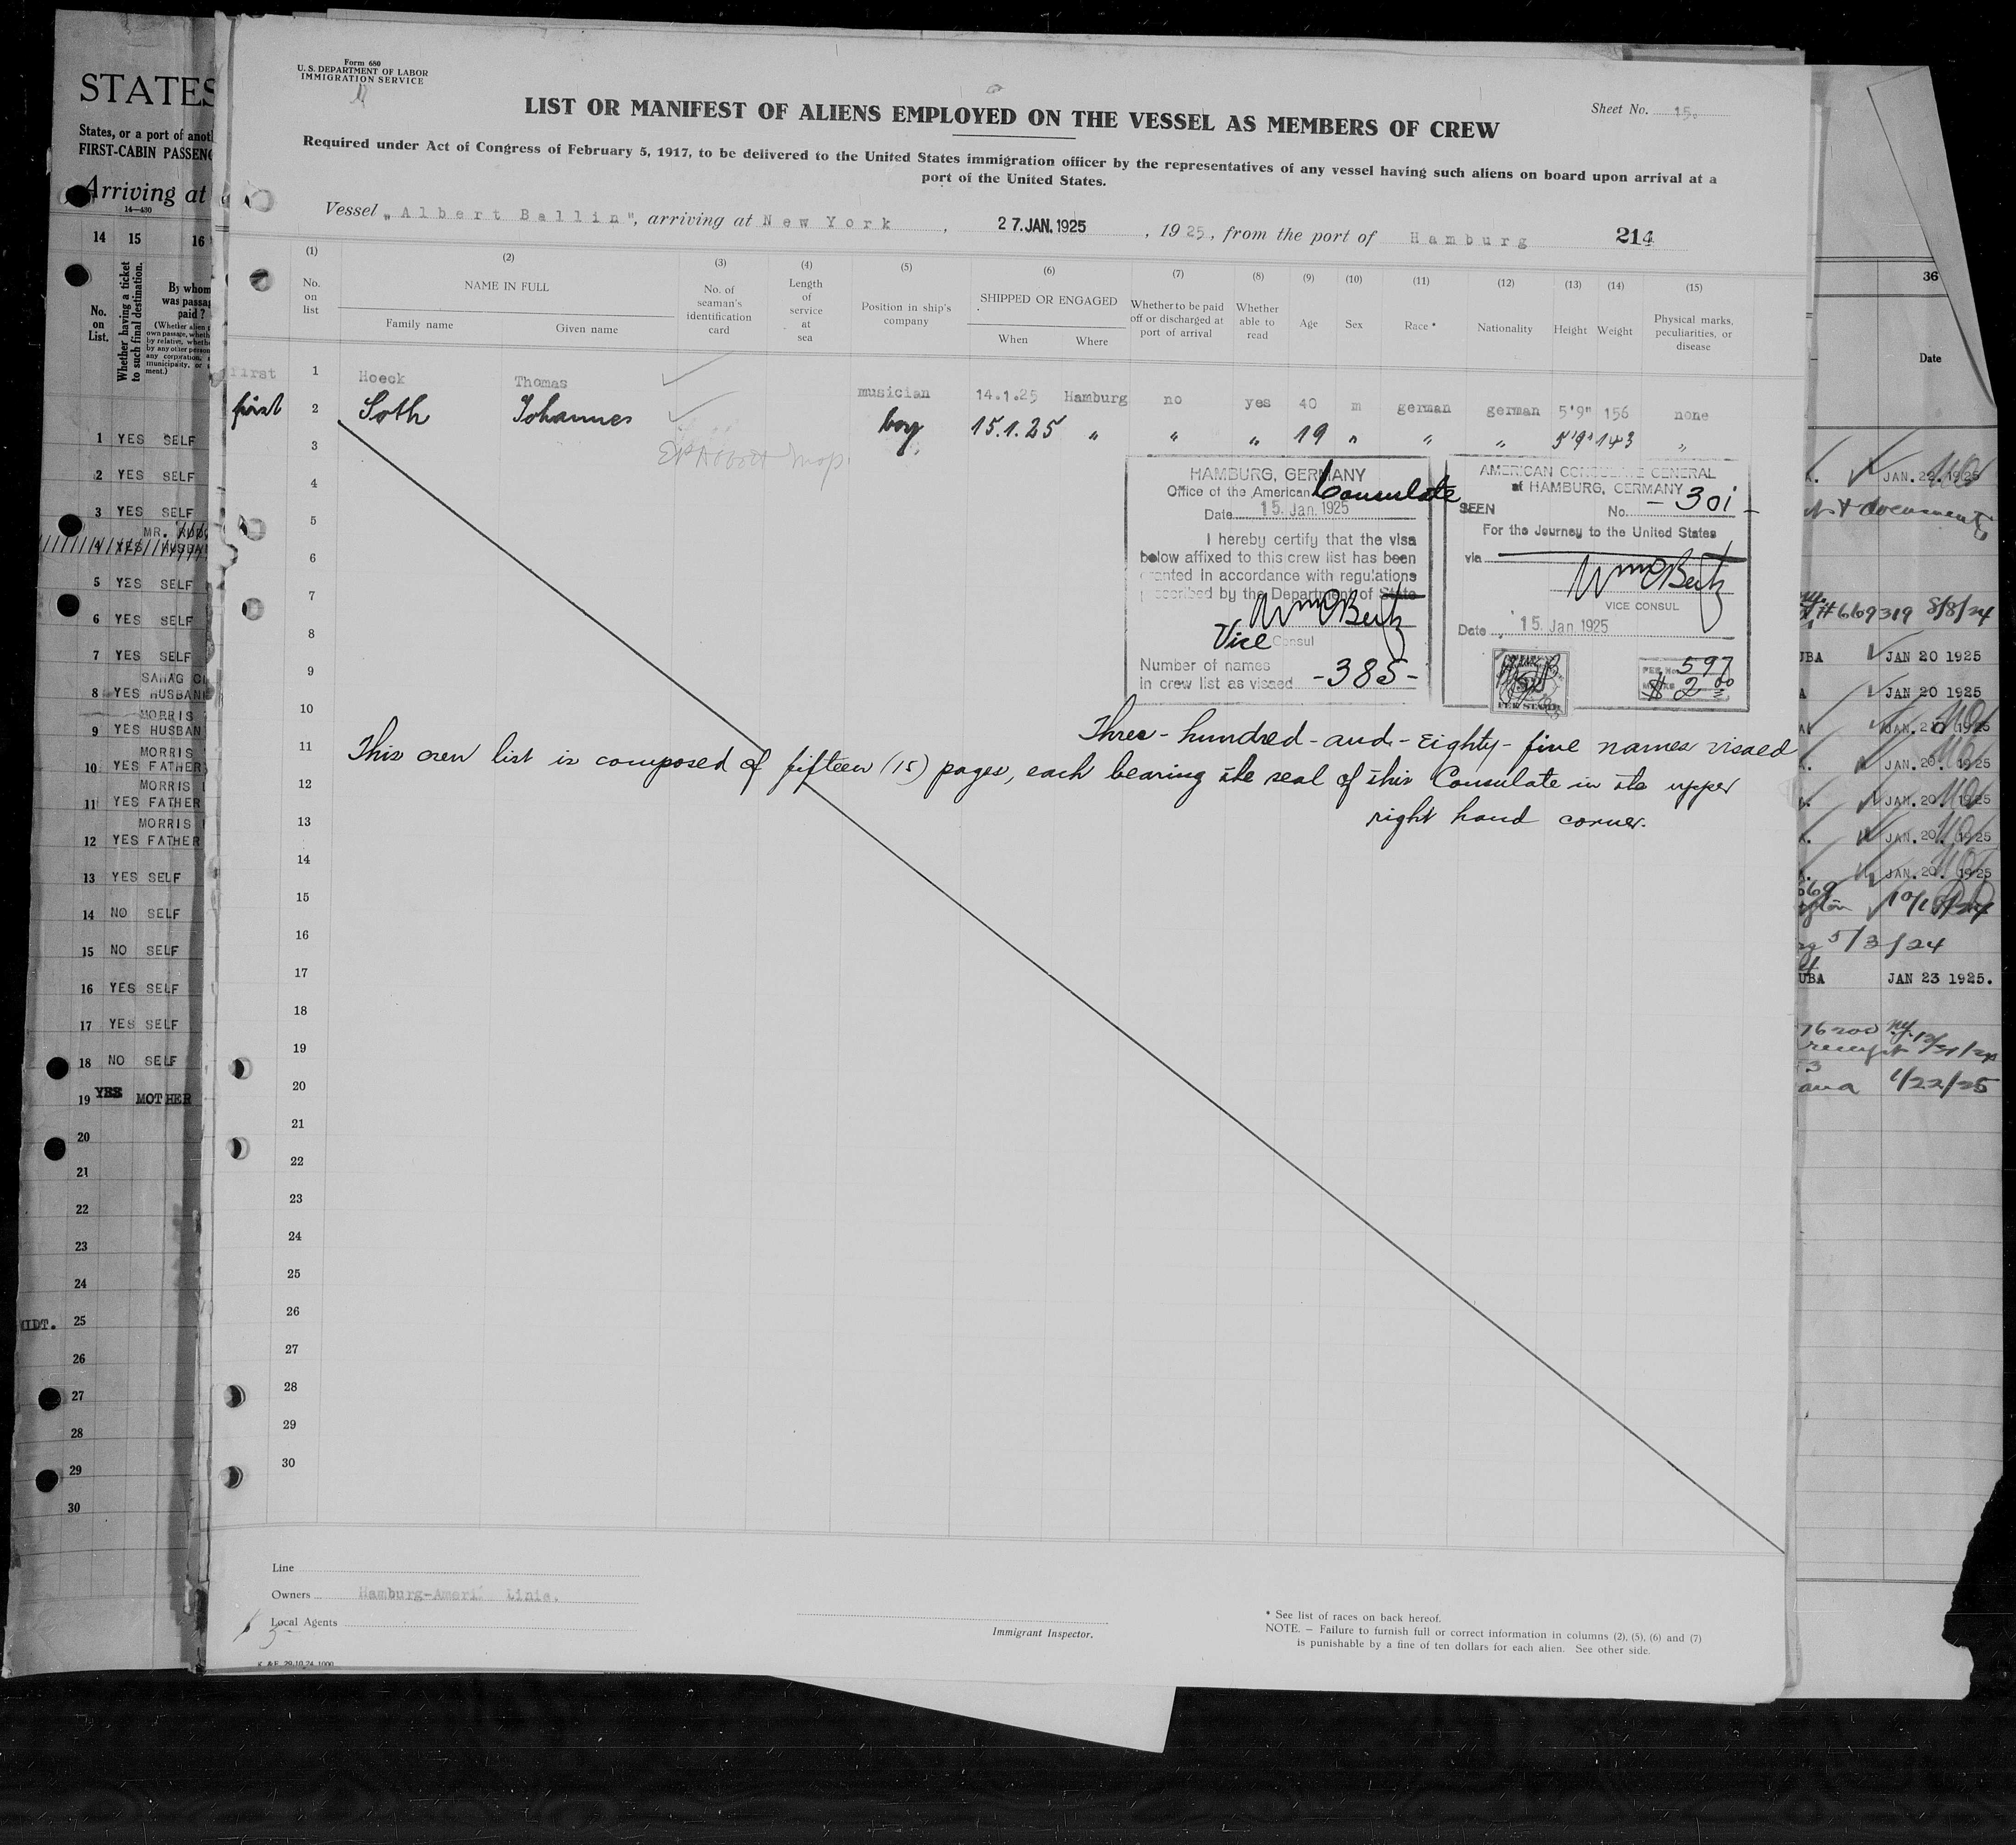 Form 680
U. S. DEPARTMENT OF LABOR
IMMIGRATION SERVICE
Sheet No. 15.
LIST OR MANIFEST OF ALIENS EMPLOYED ON THE VESSEL AS MEMBERS OF CREW
Required under Act of Congress of February 5, 1917, to be delivered to the United States immigration officer by the representatives of any vessel having such aliens on board upon arrival at a
port of the United States.
Vessel „Albert Ballin", arriving at New York, 27. JAN. 1925, 1925, from the port of Hamburg 214
(1) (2) (3) (4) (5) (6) (7) (8) (9) (10) (11) (12) (13) (14) (15)
No. on list
NAME IN FULL
Family name Given name
No. of seaman's identification card
Length of service at sea
Position in ship's company
SHIPPED OR ENGAGED
When Where
Whether to be paid off or discharged at port of arrival
Whether able to read
Age
Sex
Race *
Nationality
Height
Weight
Physical marks, peculiarities, or disease
first 1 Hoeck Thomas musician 14.1.25 Hamburg no yes 40 m german german 5'9" 156 none
first 2 Soth Johannes boy 15.1.25 " " " 19 " " " 5'9" 143 "
3
4
5
6
7
8
9
10
11
12
13
14
15
16
17
18
19
20
21
22
23
24
25
26
27
28
29
30
HAMBURG, GERMANY
Office of the American Consulate
Date 15. Jan. 1925
I hereby certify that the visa
below affixed to this crew list has been
granted in accordance with regulations
prescribed by the Department of State
Vice Consul
Number of names
in crew list as visaed -385-
AMERICAN CONSULATE GENERAL
at HAMBURG, GERMANY
SEEN No. -301-
For the Journey to the United States
via
VICE CONSUL
Date 15. Jan. 1925
597
$ 2.00
Three-hundred-and-Eighty-five names visaed
This crew list is composed of fifteen (15) pages, each bearing the seal of this Consulate in its upper
right hand corner.
Line
Owners Hamburg-Ameri Linie.
Local Agents
Immigrant Inspector.
* See list of races on back hereof.
NOTE. — Failure to furnish full or correct information in columns (2), (5), (6) and (7)
is punishable by a fine of ten dollars for each alien. See other side.
K & F. 29.10.24. 1000
STATES
States, or a port of anot
FIRST-CABIN PASSENG
Arriving at
14—430
14 15 16
No. on List.
Whether having a ticket to such final destination.
By whom was passag paid?
1 YES SELF
2 YES SELF
3 YES SELF
MR.
4 YES HUSBAN
5 YES SELF
6 YES SELF
7 YES SELF
8 YES HUSBAN
MORRIS
9 YES HUSBAN
MORRIS
10 YES FATHER
MORRIS
11 YES FATHER
MORRIS
12 YES FATHER
13 YES SELF
14 NO SELF
15 NO SELF
16 YES SELF
17 YES SELF
18 NO SELF
19 YES MOTHER
20
21
22
23
24
25
26
27
28
29
30
36
Date
JAN. 22. 1925
document
#669319 8/8/24
UBA JAN 20 1925
JAN 20 1925
JAN. 20. 1925
JAN. 20. 1925
JAN. 20. 1925
JAN. 20. 1925
5/3/24
UBA JAN 23 1925.
receipt
1/22/25